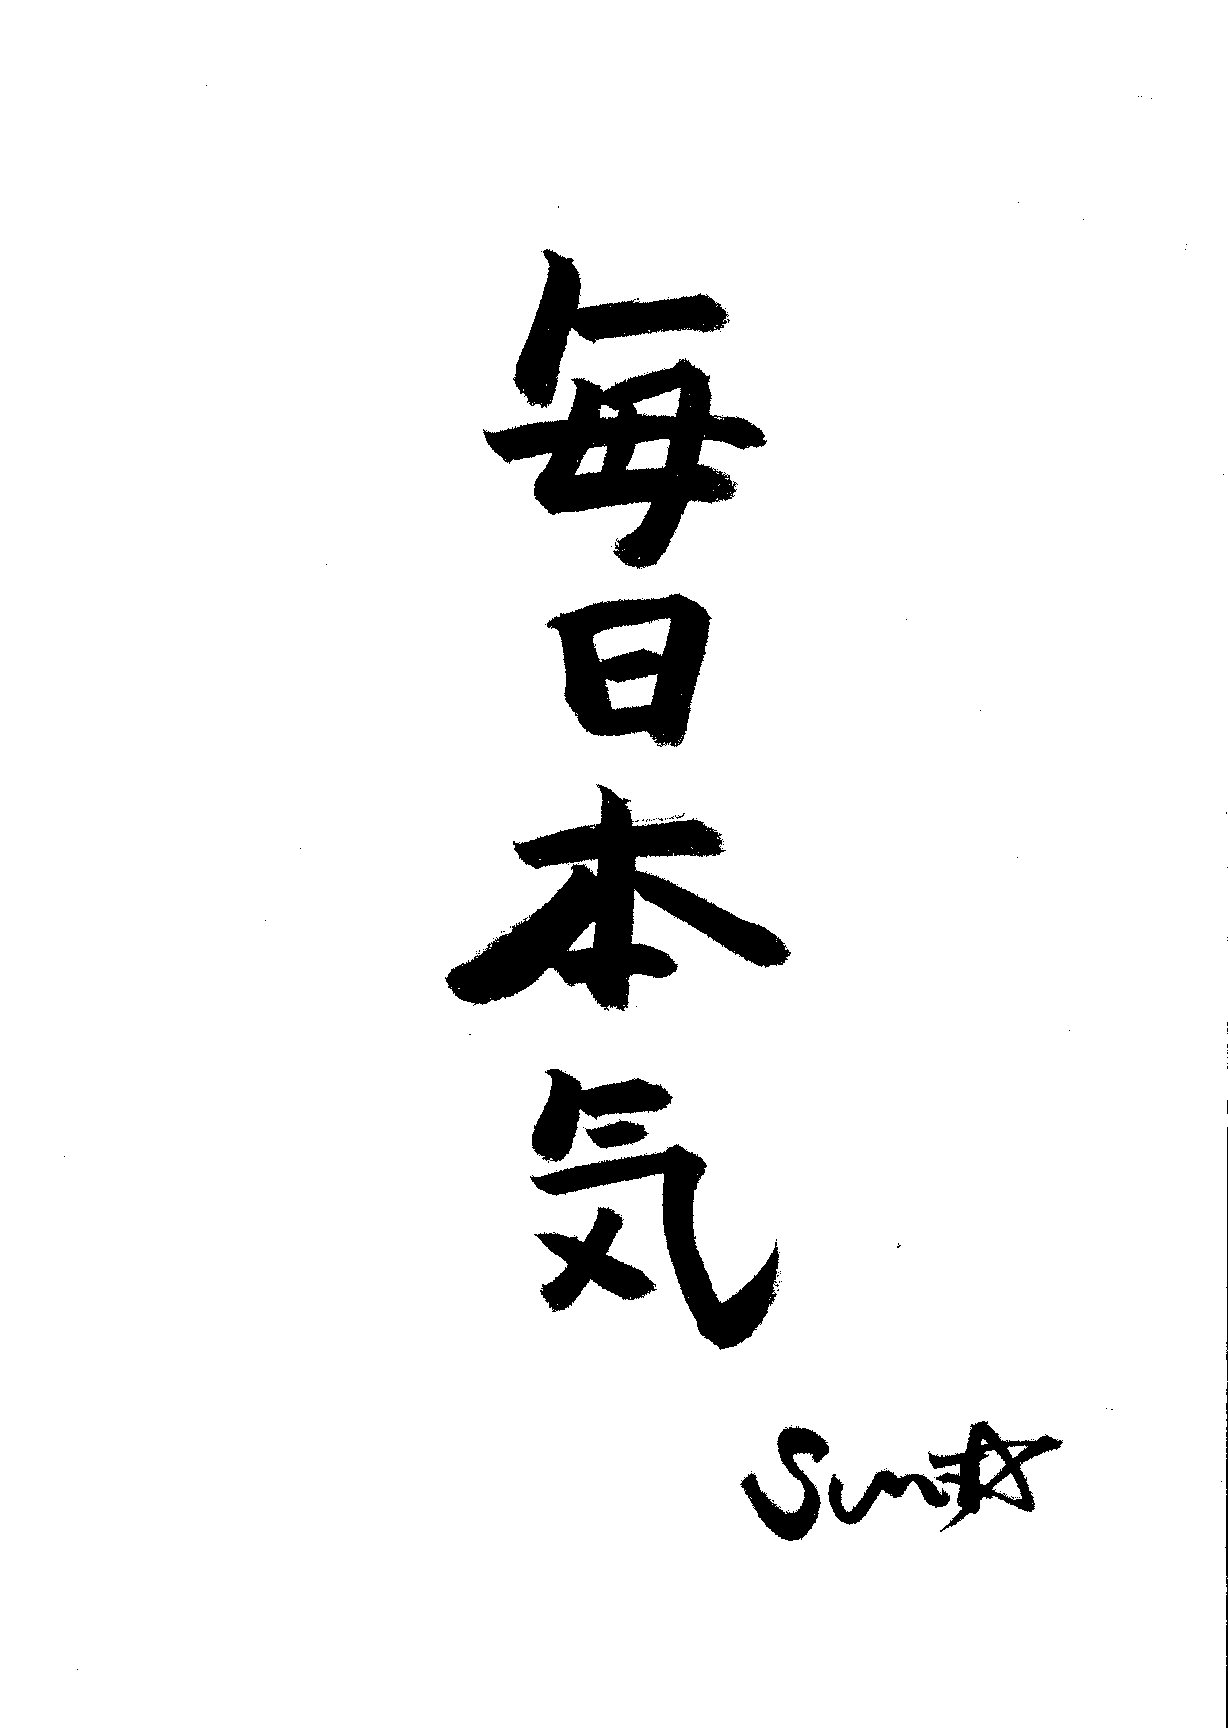 毎日本気
Sun